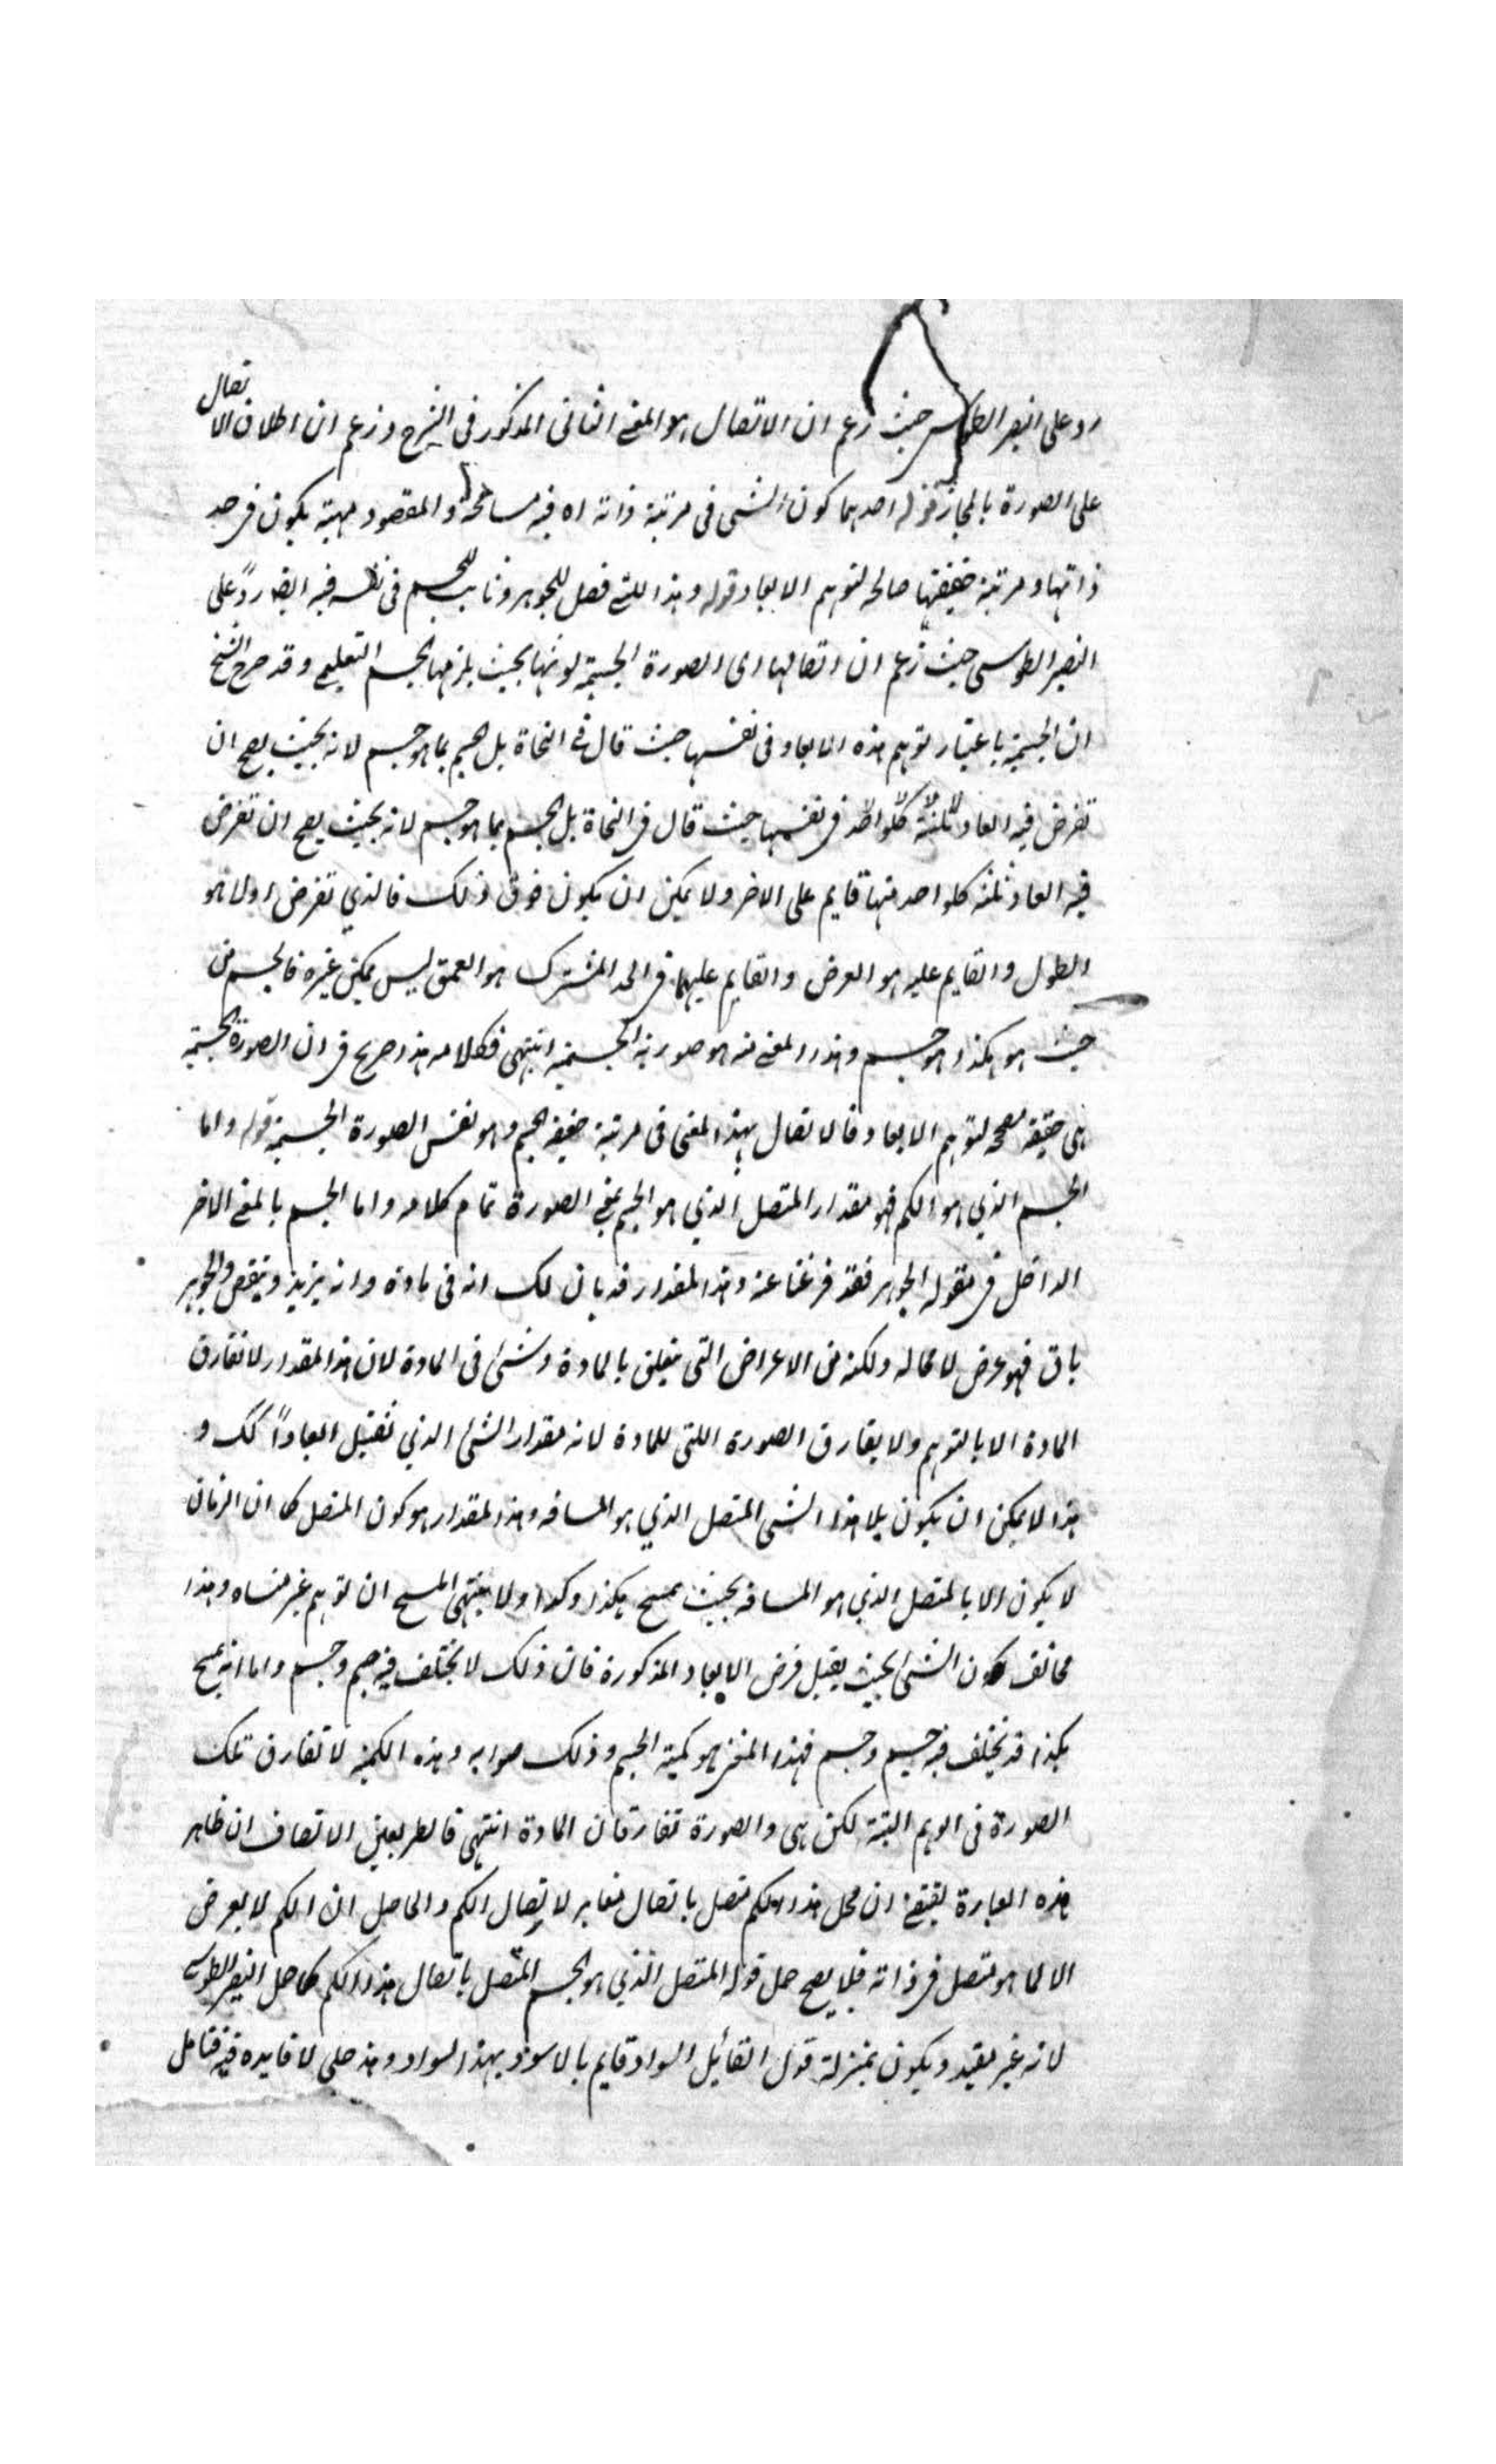 رد على النصير الطوسى حيث زعم ان الاتصال هو المعنے الثانى المذكور فى الشرح وزعم ان اطلاق الاتصال
على الصورة بالمجاز قوله احدهما كون الشى فى مرتبة ذاته اه فيه مسامحة والمقصود مهية يكون فى حد
ذاتها ومرتبة حقيقتها صالحه لتوهم الابعاد قوله وهذا المعنے فصل للجوهر وثابت للجسم فى نفسه فيه ايضا ردً على
النصير الطوسى حيث زعم ان اتصالها اى الصورة الجسمية كونها بحيث يلزمها الجسم التعليمے وقد صرح الشيخ
ان الجسمية باعتبار توهم هذه الابعاد فى نفسها حيث قال فے النجاة بل جسم بما هو جسم لانه بحيث يصح ان
تفرض فيه ابعاد ثلثة كلواحد فى نفسها حيث قال فى النجاة بل الجسم بما هو جسم لانه بحيث يصح ان تفرض
فيه ابعاد ثلثه كلواحد منها قايم على الاخر ولا يمكن ان يكون فوق ذلك فالذي تفرض اولا هو
الطول والقايم عليه هو العرض والقايم عليهما فى الحد المشترك هو العمق ليس يمكن غيره فالجسم من
حيث هو هكذا هو جسم وهذا المعنے منه هو صورته الجسمية انتهى فكلامه هذا صريح فى ان الصورة الجسمية
هى حقيقه مصححه لتوهم الابعاد فالاتصال بهذا المعنى فى مرتبة حقيقه الجسم وهو نفس الصورة الجسمية قوله واما
الجسم الذي هو الكم فهو مقدار المتصل الذي هو الجسم بمعنے الصورة تمام كلامه واما الجسم بالمعنے الاخر
الداخل فى مقوله الجوهر فقد فرغنا عنه وهذا المقدار قد بان لك انه فى مادة وانه يزيد وينقص والجوهر
باق فهو عرض لا محاله ولكنه من الاعراض التى يتعلق بالمادة وشئ فى المادة لان هذا المقدار لا تفارق
المادة الا بالتوهم ولا يفارق الصورة اللتى للمادة لانه مقدار الشئ الذي تقبل ابعاداً كك و
هذا لا يمكن ان يكون بلا هذا الشى المتصل الذي هو المسافه وهذا المقدار هو كون المتصل كما ان الزمان
لا يكون الا بالمتصل الذي هو المسافه بحيث يمسح بكذا وكذا ولا ينتهى المسح ان توهم غير متناه وهذا
مخالف لكون الشئ بحيث يقبل فرض الابعاد المذكورة فان ذلك لا يختلف فيه جسم وجسم واما انه يمسح
بكذا قد يختلف فيه جسم وجسم فهذا المعنى هو كمية الجسم وذلك صوابه وهذه الكمية لا تفارق تلك
الصورة فى الوهم البتة لكن هى والصورة تفارقان المادة انتهى فانظر بعين الانصاف ان ظاهر
هذه العبارة يقتضے ان محل هذا الكم متصل باتصال مغاير لاتصال الكم والحاصل ان الكم لا يعرض
الا لما هو متصل فى ذاته فلا يصح حمل قوله المتصل الذي هو الجسم المتصل باتصال هذا الكم كما حمل النصير الطوسى
لانه غير مفيد ويكون بمنزلة قول القائيل السواد قايم بالاسود بهذا السواد وهذا حملى لا فايده فيه فتامل